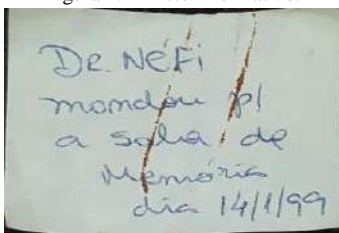 Dr. NéFi
mandou p/
a sala de
Memória
dia 14/1/99